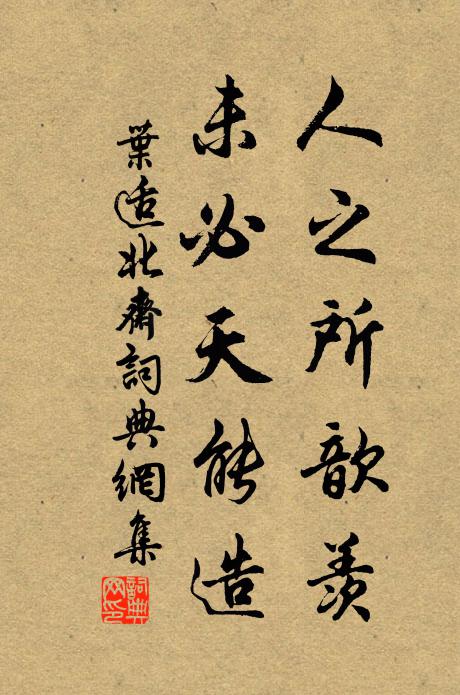 人之所歆羡
未必天能造
葉适北齋詞典網集
詞典网印